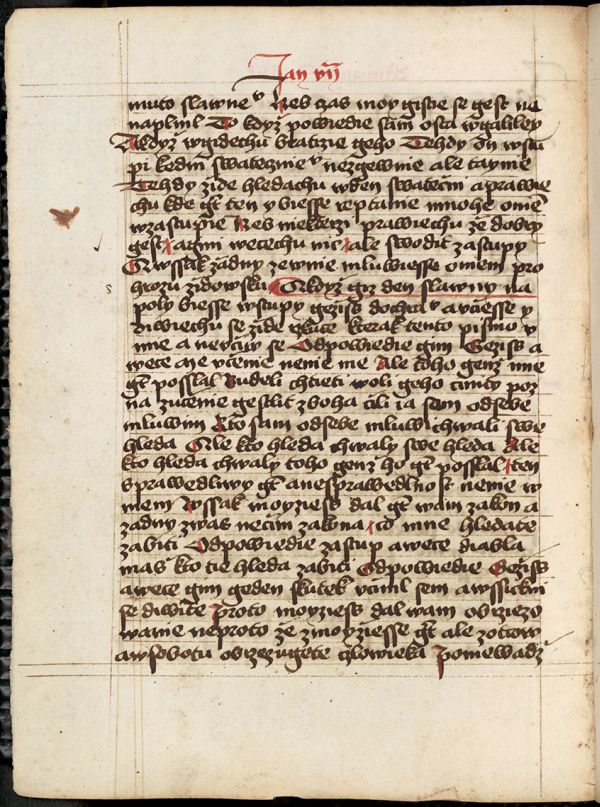 Jan vii
muto slawne v Neb czas moy gistie se gest ne
naplnil To kdyz powiedie sam osta wgaliley
A kdyz wgidechu bratrzie geho Tehdy on wstu
pi kedni swatecznie v ne zgewnie ale taynie
Tehdy zide hledachu wden swateczni a prawie
chu kde gt ten y biesse reptanie mnohe o nem
wzastupie Neb niekterzi prawiechu ze dobry
gest a gini wecechu nic ale swodit zastupy
A wssak zadny zewnie mluwiesse o nem pro
hrozu zidowsku A kdyz giz den slawny na
poly biesse wstupy gezis do chra v a vciesse y
diwiechu se zide rkuce kterak tento pismo v
mie a nevciw se Odpowiedie gim Gezis a
wece me vcenie nenie me Ale toho genz mne
gt posslal Budeli chtieti woli geho ciniti poz
na z ucenie gestlit z boha cili ia sem od sebe
mluwim Kto sam od sebe mluwi chwali swe
hleda Ale kto hleda chwaly swe hleda Ale
kto hleda chwaly toho genz ho gt posslal ten
sprawedliwy gt a nesprawedlnost nenie w
niem Wssak moyziess dal gt wam zakon a
zadny z was necini zakona co mne hledate
zabiti Odpowiedie zastup a wece diabla
mas kto tie hleda zabiti Odpowiedie Geziss
a wece gim geden skutek vcinil sem a wssickni
se diwite Proto moyziess dal wam obrzezo
wanie ne proto ze z moyziesse gt ale z otcow
a w sobotu obrzezugete czlowieka Poniewadz